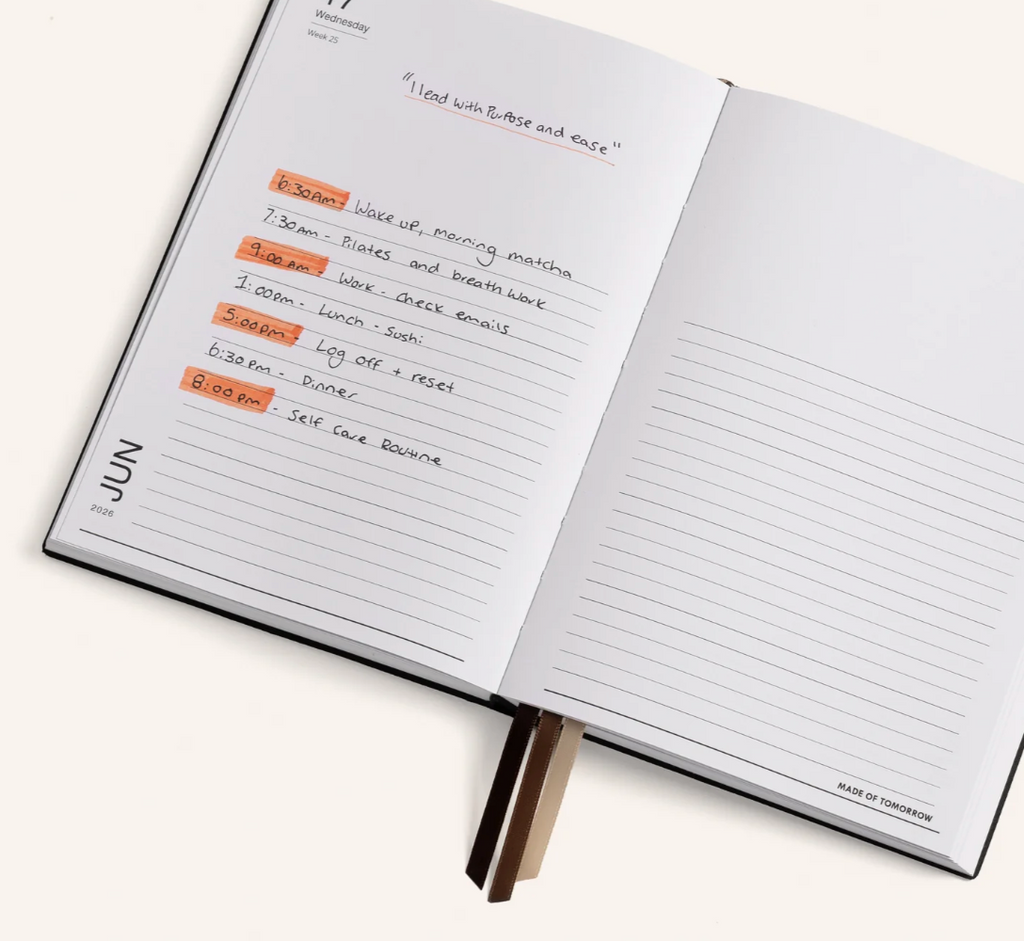 17
Wednesday
Week 25
"I lead with Purpose and ease"
6:30am - Wake up, morning matcha
7:30am - Pilates and breath work
9:00 am - Work - check emails
1:00pm - Lunch - sushi
5:00pm - Log off + reset
6:30pm - Dinner
8:00pm - Self Care Routine
JUN
2026
MADE OF TOMORROW